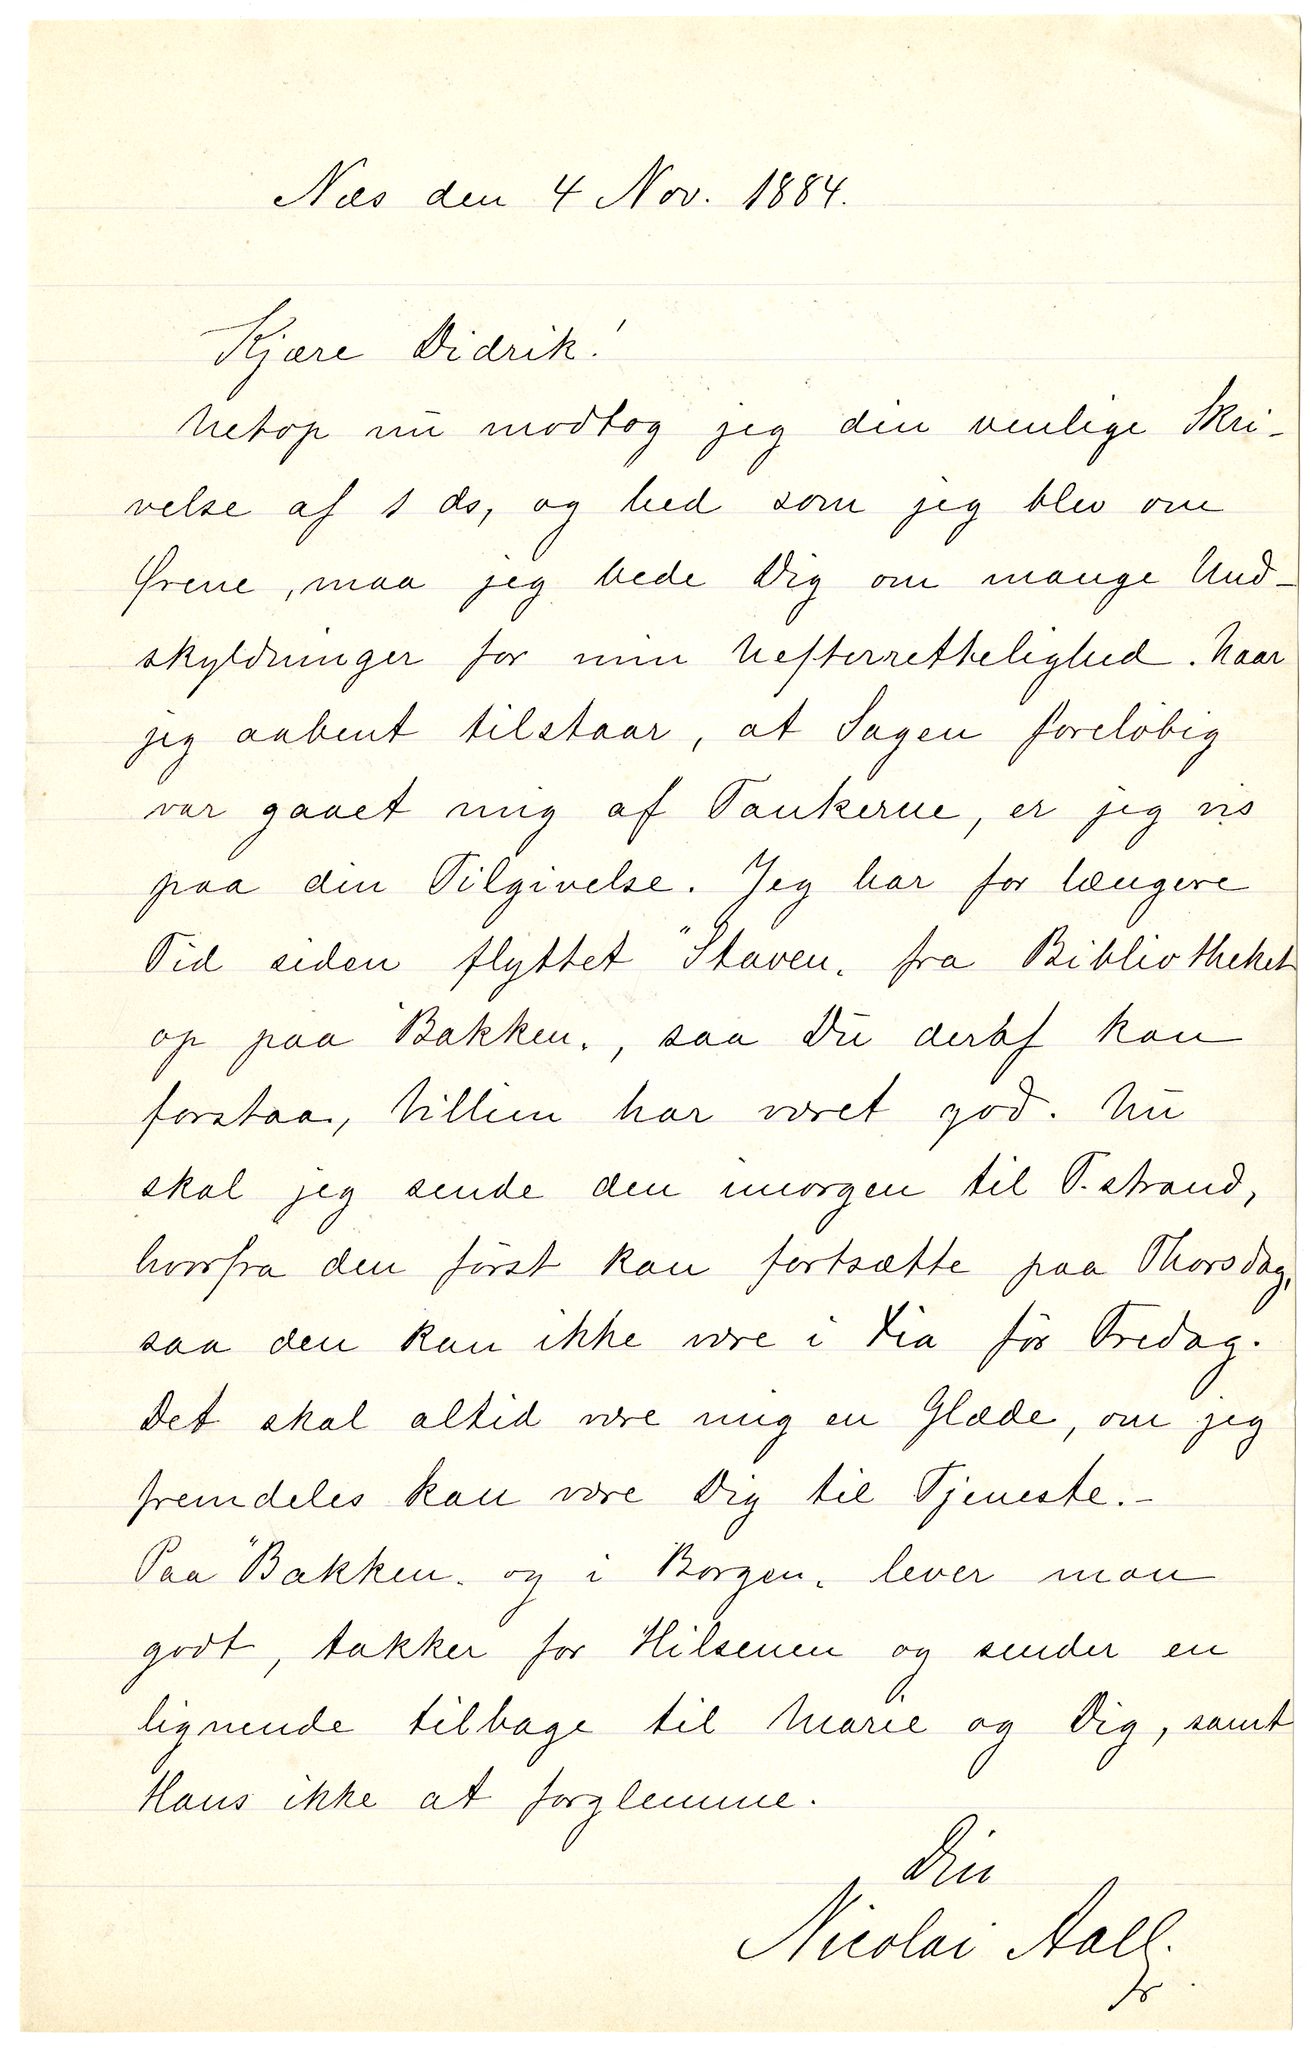 Næs den 4 Nov. 1884.
Kjære Didrik!
Netop nu modtog jeg din venlige Skri-
velse af 1 ds, og hed som jeg blev om
Ørene, maa jeg bede Dig om mange Und-
skyldninger for min Uefterrettelighed. Naar
jeg aabent tilstaar, at Sagen foreløbig
var gaaet mig af Tankerne, er jeg vis
paa din Tilgivelse. Jeg har for længere
Tid siden flyttet "Staven" fra Bibliotheket
op paa "Bakken", saa Du deraf kan
forstaa, Villien har været god. Nu
skal jeg sende den imorgen til T.strand,
hvorfra den først kan fortsætte paa Thorsdag,
saa den kan ikke være i Xia før Fredag.
Det skal altid være mig en Glæde, om jeg
fremdeles kan være Dig til Tjeneste.-
Paa "Bakken" og i Borgen" lever man
godt, takker for Hilsenen og sender en
lignende tilbage til Marie og Dig, samt
Hans ikke at forglemme.
Din
Nicolai Aall.
jr.